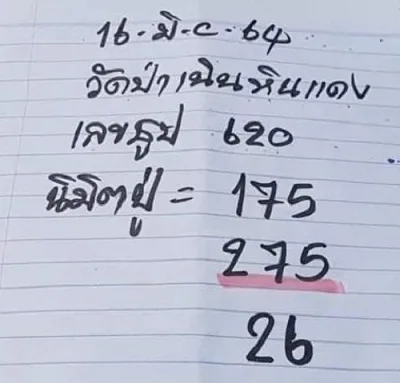 16.มี.ค.64
วัดป่าเนินหินแดง
เลขธูป 620
นิมิตปู่ = 175
275
26